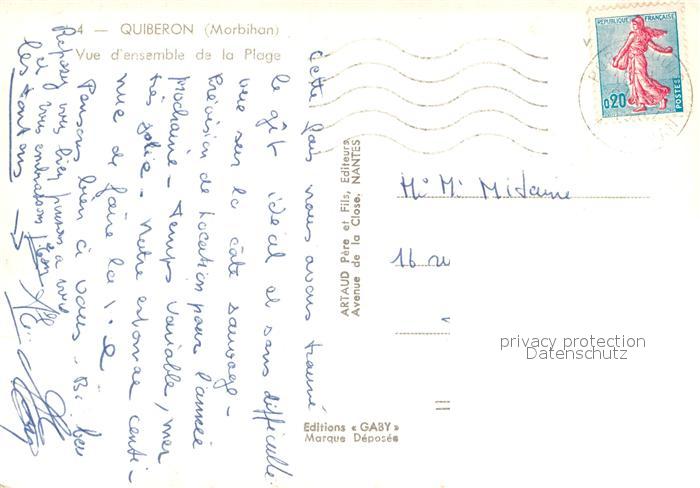 4 — QUIBERON (Morbihan)
Vue d'ensemble de la Plage
Cette fois nous avons trouvé
le gît idéal et sans difficulté
vue sur la côte sauvage -
Prévision de Location pour l'année
prochaine - Temps variable, mer
très jolie - Notre estomac conti-
nue de faire la
Pensons bien à vous -
Reposez vous bien pensons à vous
et vous embrassons
les tontons
ARTAUD Père et Fils, Editeurs
Avenue de la Close, NANTES
Editions « GABY »
Marque Déposée
REPUBLIQUE FRANÇAISE
0,20
POSTES
Mr Mme
16 ru
privacy protection
Datenschutz